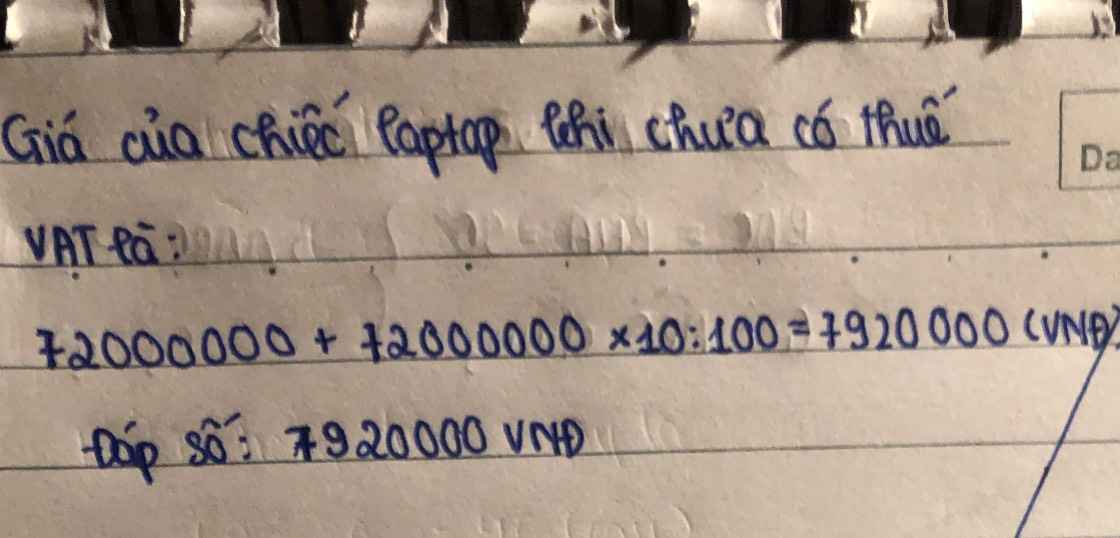 Giá của chiếc laptop khi chưa có thuế
Da
VAT là:
72000000 + 72000000 x10:100 = 7920000 (VNĐ)
Đáp số: 7920000 VNĐ